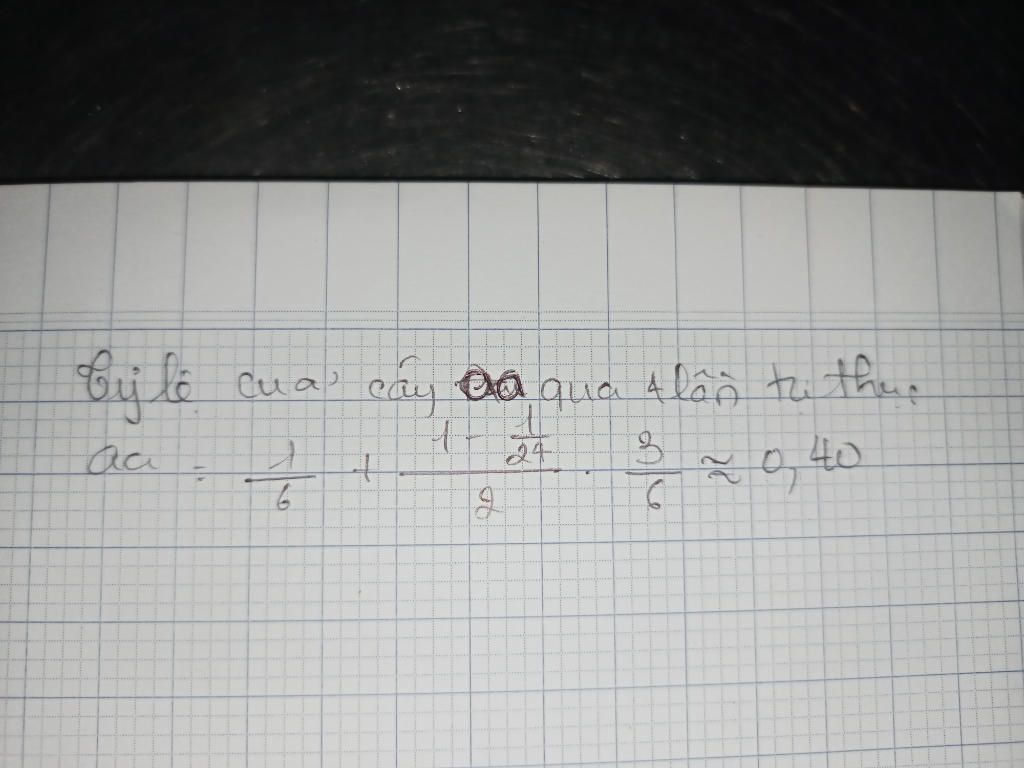 Tỷ lệ của cây aa qua 4 lần tự thụ:
aa = 1/6 + (1 - 1/24)/2 . 3/6 ≈ 0,40